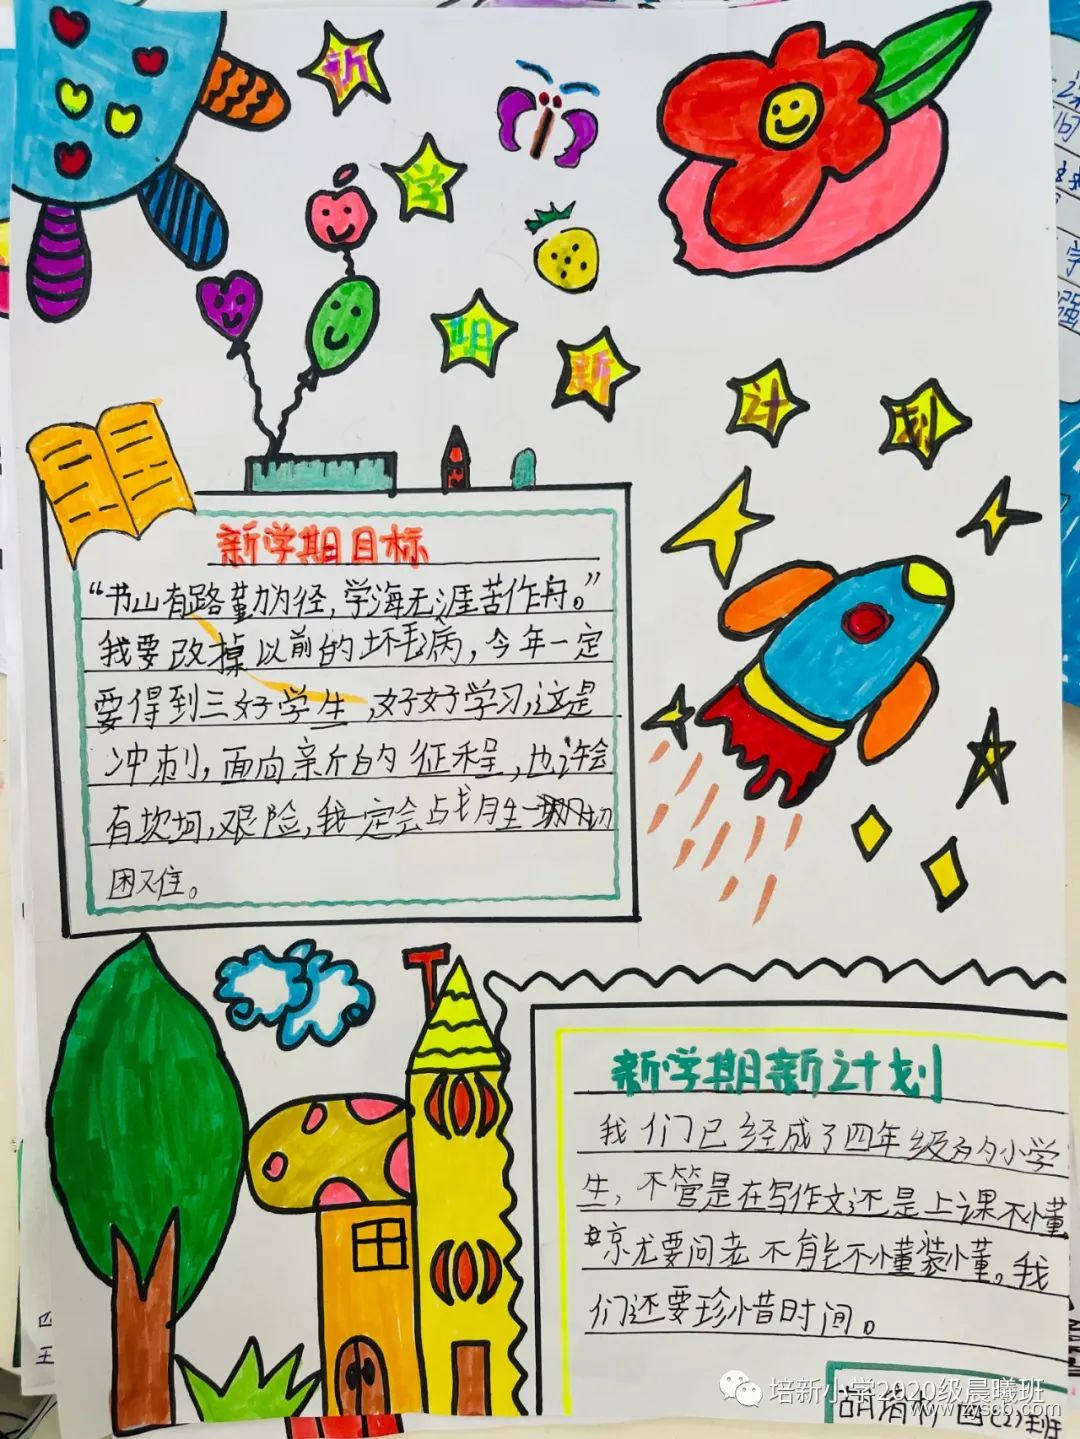 新
学
期
新
计
划
新学期目标
“书山有路勤为径，学海无涯苦作舟。”
我要改掉以前的坏毛病，今年一定
要得到三好学生，好好学习，这是
冲刺，面向新的征程，也许会
有坎坷，艰险，我一定会战胜一切
困难。
新学期新计划
我们已经成了四年级的小学
生，不管是在写作文还是上课不懂
就要问老 不能不懂装懂。我
们还要珍惜时间。
四(2)班
培新小学2020级晨曦班
www.yscb.com